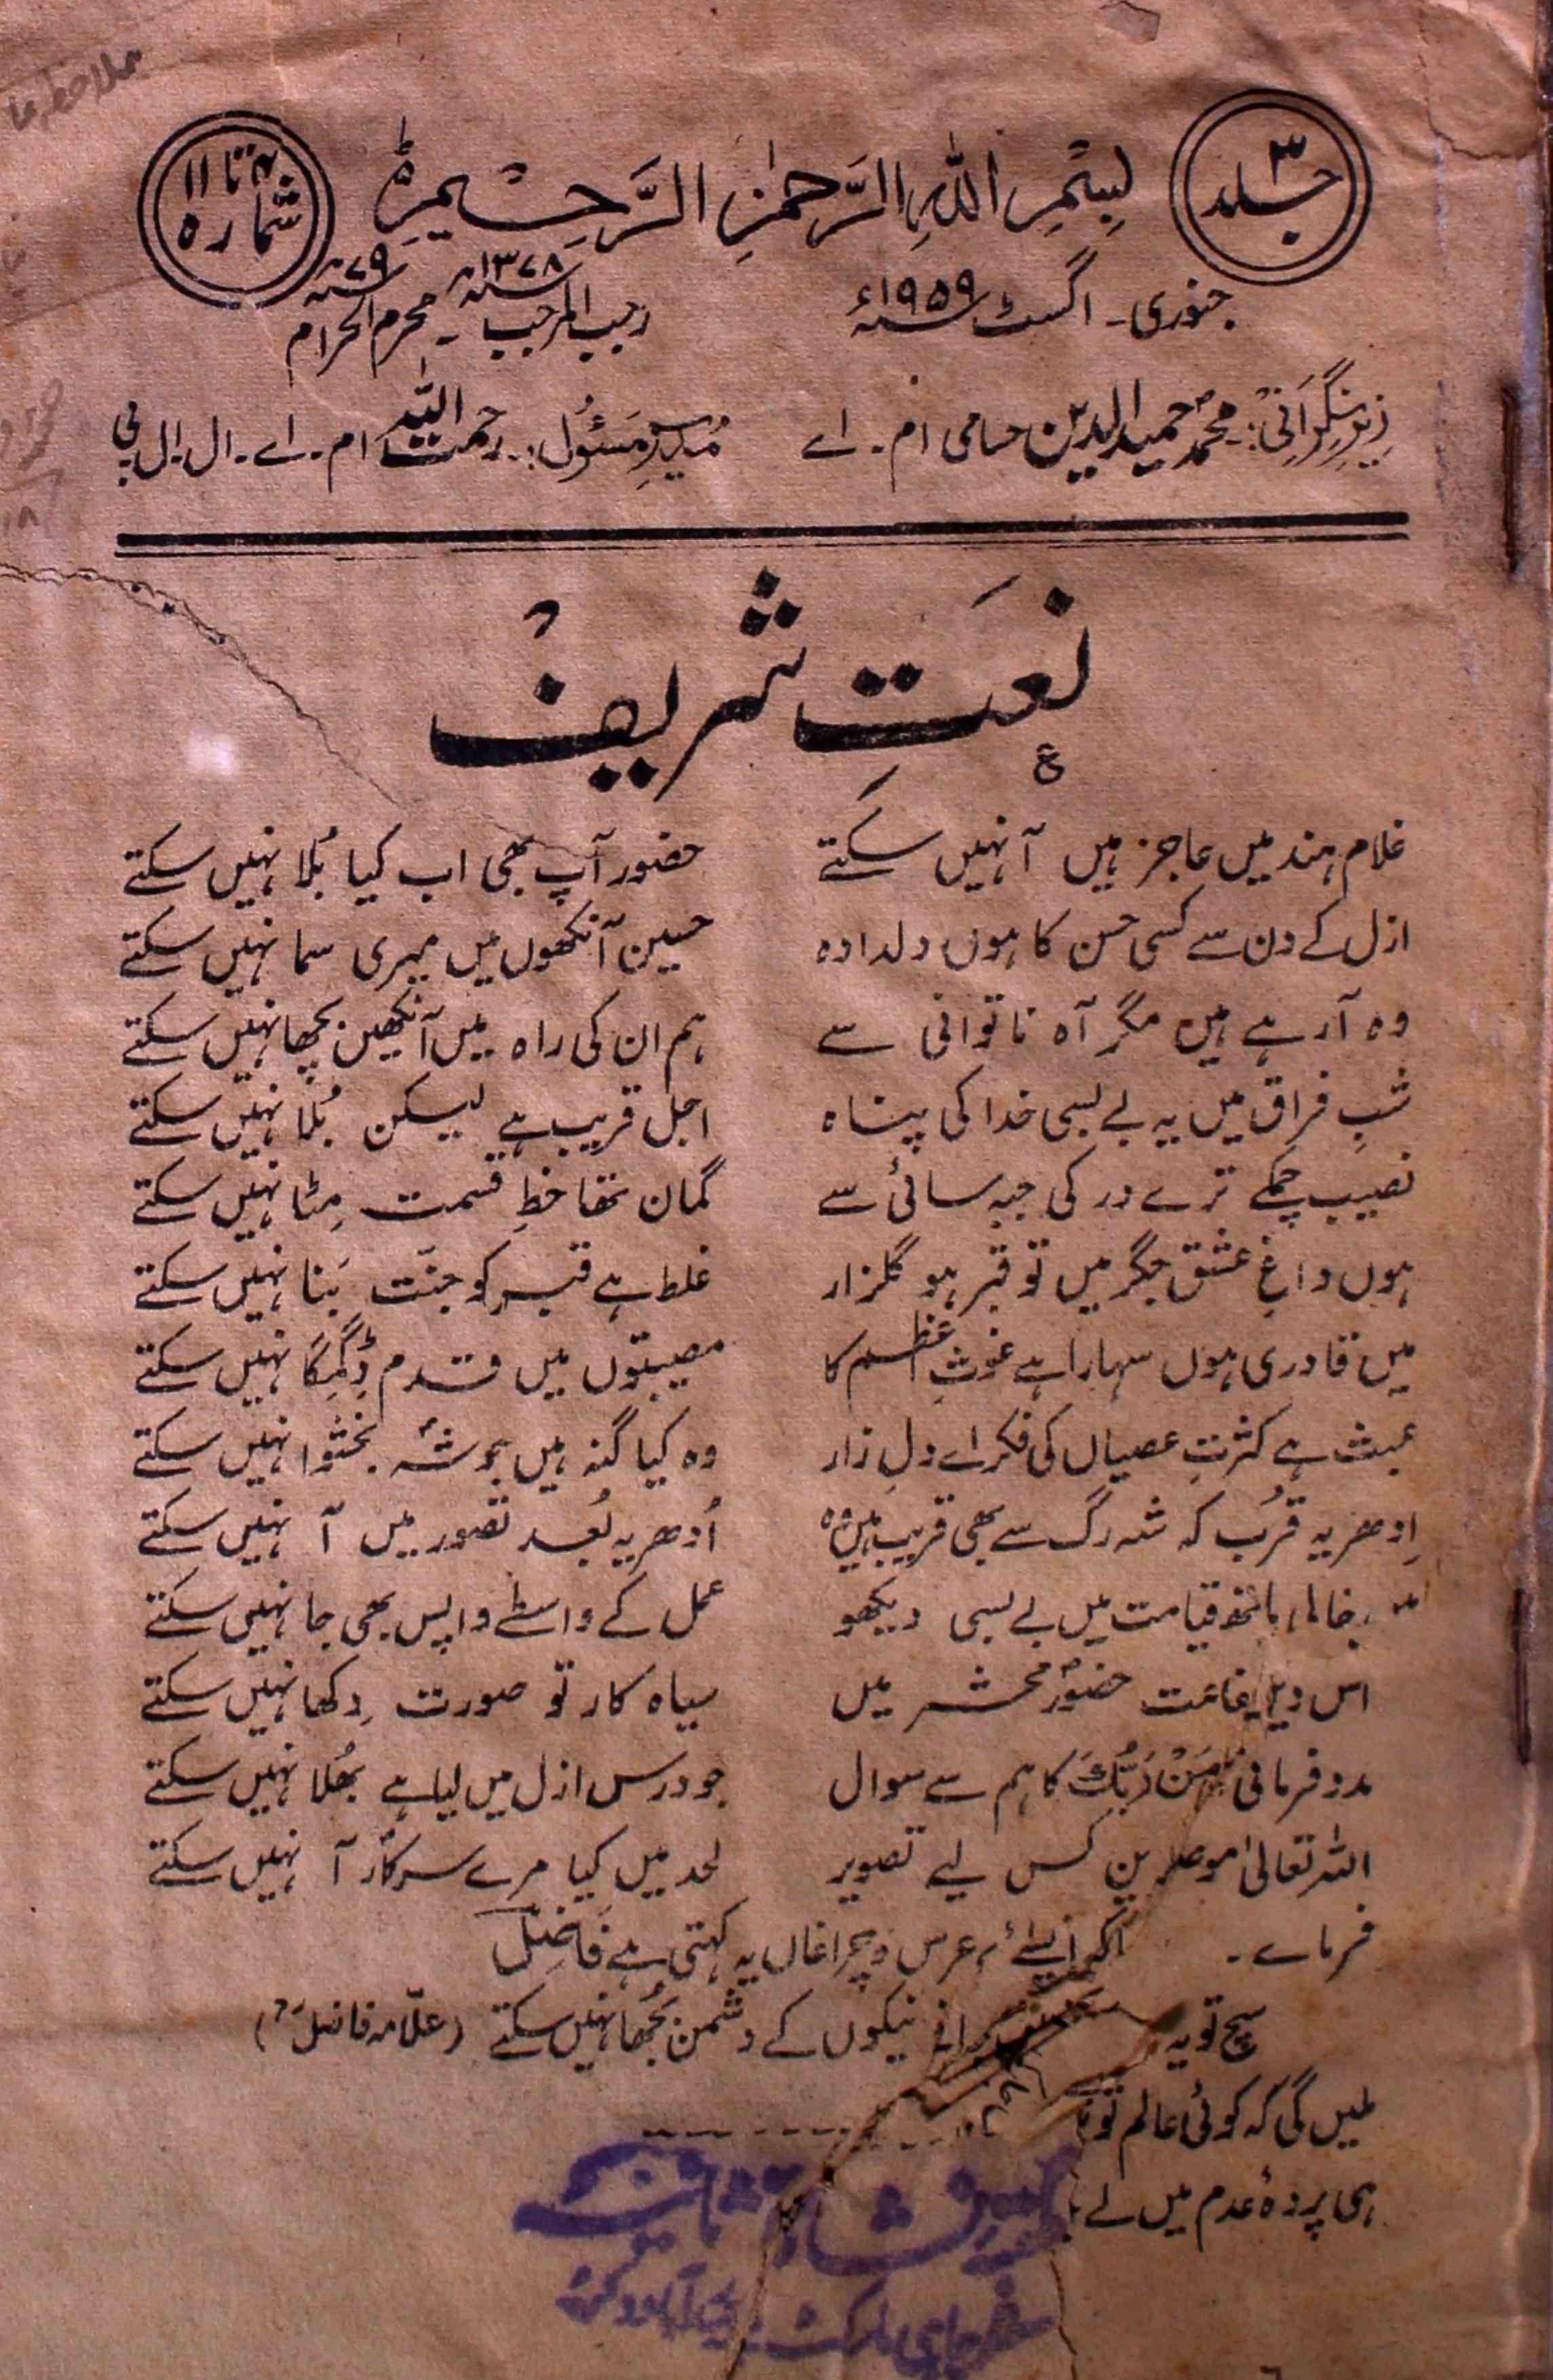 جلد ۳
بِسْمِ اللّٰهِ الرَّحْمٰنِ الرَّحِيْمِ
شمارہ ۴ تا ۱۱
جنوری۔ اگست ۱۹۵۹ء
رجب المرجب ۱۳۷۸ھ۔ محرم الحرام ۷۹ھ
زیرِ نگرانی:۔ محمد حمید الدین حسامی ام۔ اے
مُدیرِ مَسئُول:۔ رحمت اللہ ام۔ اے۔ ال۔ ال بی
نعتِ شریف
غلام ہند میں عاجز ہیں آ نہیں سکتے
حضور آپ بھی اب کیا بُلا نہیں سکتے
ازل کے دن سے کسی حسن کا ہوں دلدادہ
حسین آنکھوں میں میری سما نہیں سکتے
وہ آرہے ہیں مگر آہ ناتوانی سے
ہم ان کی راہ میں آنکھیں بچھا نہیں سکتے
شبِ فراق میں یہ بے بسی خدا کی پناہ
اجل قریب ہے لیکن بُلا نہیں سکتے
نصیب چمکے ترے در کی جبہ سائی سے
گمان تھا خطِ قسمت مِٹا نہیں سکتے
ہوں داغِ عشق جگر میں تو قبر ہو گلزار
غلط ہے قبر کو جنّت بَنا نہیں سکتے
میں قادری ہوں سہارا ہے غوثِ اعظم کا
مصیبتوں میں قدم ڈگمگا نہیں سکتے
عبث ہے کثرتِ عصیاں کی فکر اے دلِ زار
وہ کیا گنہ ہیں جو شہ بخشوا نہیں سکتے
اِدھر یہ قرُب کہ شہ رگ سے بھی قریب ہیں وہ
اُدھر یہ بُعد تصور میں آ نہیں سکتے
خالی ہاتھ قیامت میں بے بسی دیکھو
عمل کے واسطے واپس بھی جا نہیں سکتے
اس حضورؐ محشر میں
سیاہ کار تو صورت دِکھا نہیں سکتے
مدد فرمائی مَنْ رَبُّكَ کا ہم سے سوال
جو درس ازل میں لیا ہے بھُلا نہیں سکتے
اللہ تعالیٰ کس لیے تصویر
لحد میں کیا مرے سرکارؐ آ نہیں سکتے
فرمائے۔ عرس و چراغاں یہ کہتی ہے فاضِلؔ
سچ تو یہ نیکوں کے دشمن بُجھا نہیں سکتے (علّامہ فاضلؔ)
ملیں گی کہ کوئی عالم تو
ہی پردۂ عدم میں لے